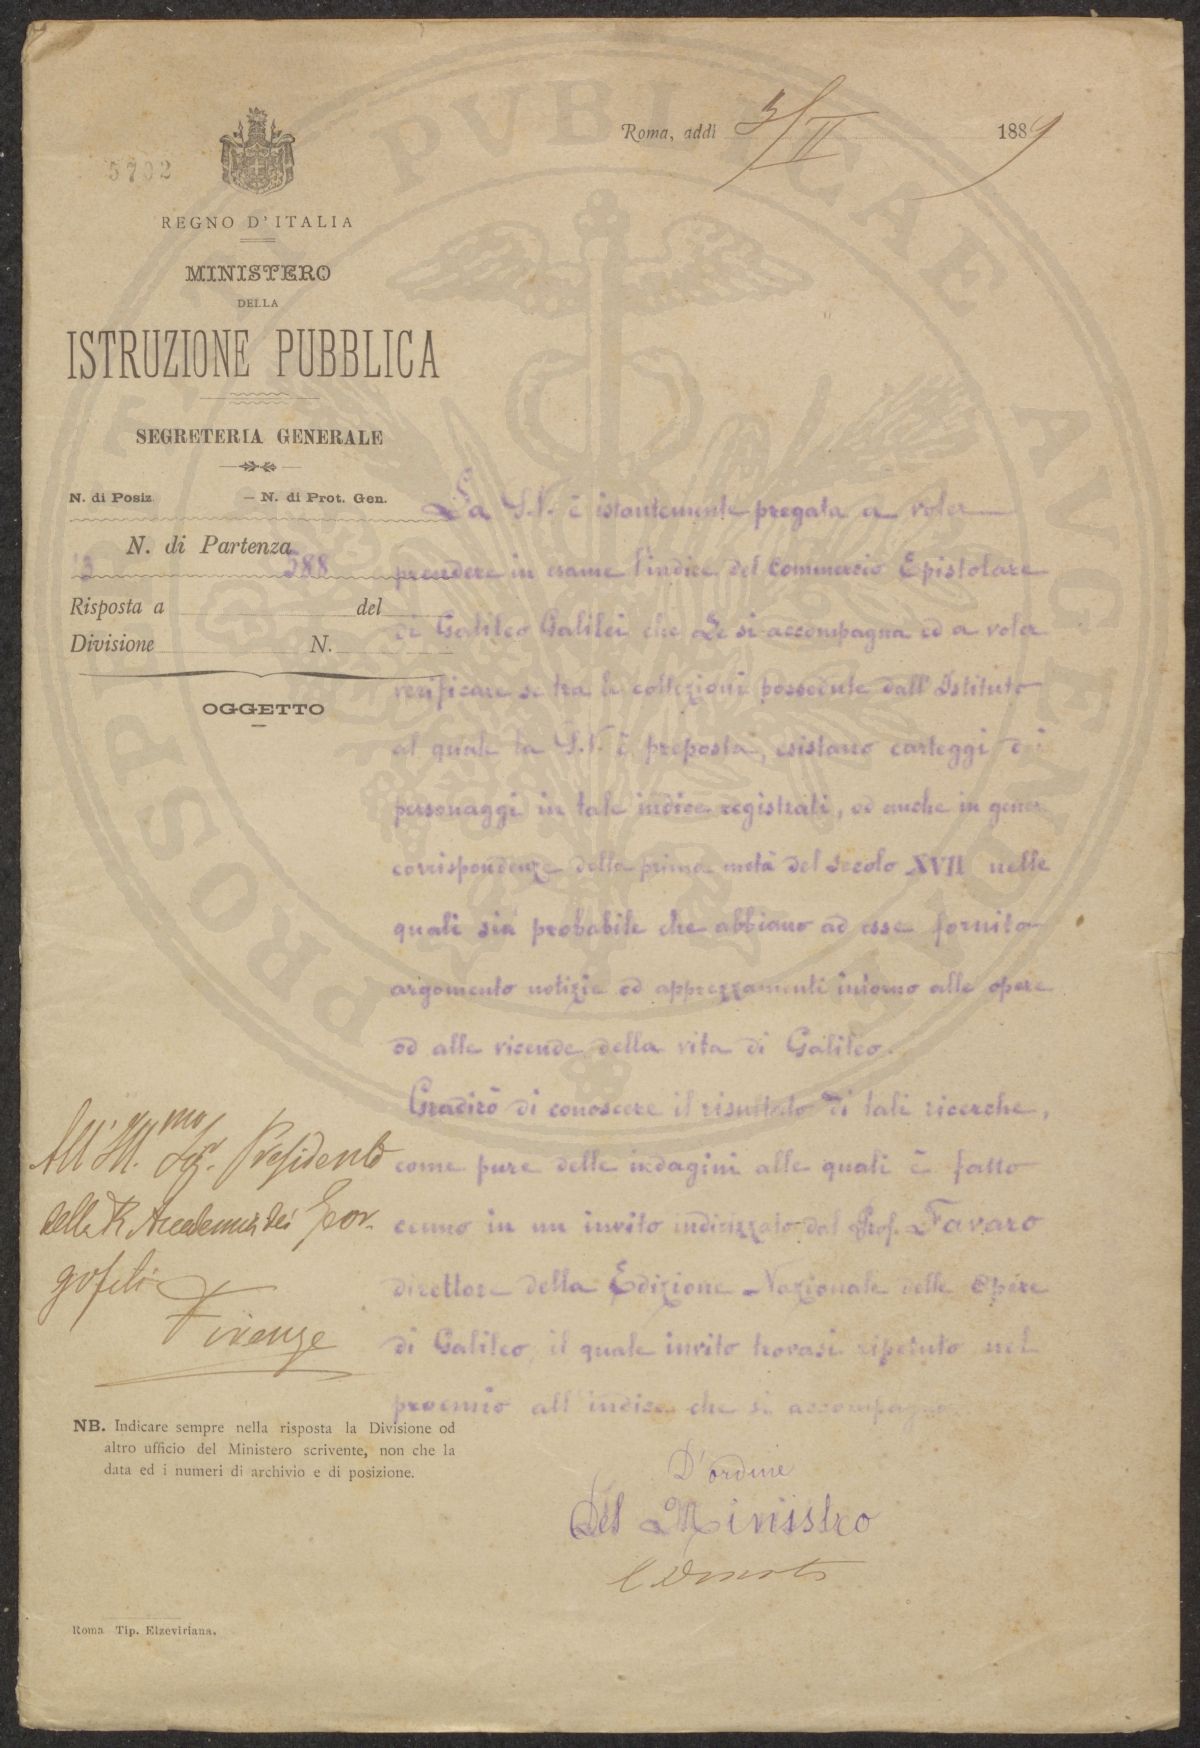 Roma, addì 3/II 1889
5792
REGNO D'ITALIA
MINISTERO
DELLA
ISTRUZIONE PUBBLICA
SEGRETERIA GENERALE
N. di Posiz. — N. di Prot. Gen.
N. di Partenza
13 588
Risposta a del
Divisione N.
OGGETTO
La S.V. è istantemente pregata a voler
prendere in esame l'indice del Commercio Epistolare
di Galileo Galilei che Le si accompagna ed a voler
verificare se tra le collezioni possedute dall'Istituto
al quale la S.V. è preposta, esistano carteggi dei
personaggi in tale indice registrati, od anche in genere
corrispondenze della prima metà del secolo XVII nelle
quali sia probabile che abbiano ad esse fornito
argomento notizie od apprezzamenti intorno alle opere
od alle vicende della vita di Galileo.
Gradirò di conoscere il risultato di tali ricerche,
come pure delle indagini alle quali è fatto
cenno in un invito indirizzato dal Prof. Favaro
direttore della Edizione Nazionale delle Opere
di Galileo, il quale invito trovasi ripetuto nel
proemio all'indice che si accompagna.
D'ordine
Del Ministro
All'Ill.mo Sigr. Presidente
della R Accademia dei Geor-
gofili
Firenze
NB. Indicare sempre nella risposta la Divisione od
altro ufficio del Ministero scrivente, non che la
data ed i numeri di archivio e di posizione.
Roma Tip. Elzeviriana.
PROSPERITATI PVBLICAE AVGENDAE